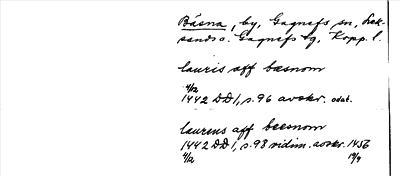 Båsna, by, Gagnefs sn, Lek-
sands o. Gagnefs tg, Kopp. l.
lauris aff bæsnom
4/12
1442 DD 1, s. 96 avskr. odat.
laurens aff beesnom
1442 DD 1, s. 98 vidim. avskr. 1456
4/12 19/9